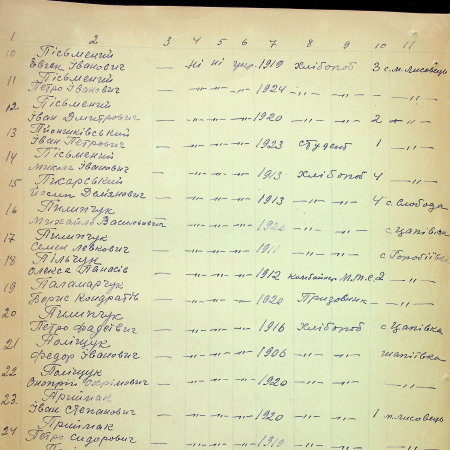 1 2 3 4 5 6 7 8 9 10 11
10 Пісьменний
Євген Іванович — ні ні укр. 1919 Хлібороб 3 с.м. Лисовець
11 Пісьменний
Петро Іванович — -"- -"- -"- 1924 -"- -"- — -"-
12 Пісьменний
Іван Дмитрович — -"- -"- -"- 1920 -"- -"- 2 -"-
13
Іван Петрович — -"- -"- -"- 1923 Студент 1 -"-
14 Пісьменний
Микола Іванович — -"- -"- -"- 1913 Хлібороб 4 -"-
15 Пікарський
Йосип Дем'янович — -"- -"- -"- 1913 -"- -"- 4 с Слобода
16 Пилипчук
Михайло Васильович — -"- -"- -"- 1920 -"- -"- с Цапівка
17 Пилипчук
Семен Левкович — -"- -"- -"- 1911 -"- -"- с
18 Пільчук
Олекса Панасів — -"- -"- -"- 1912 Комбайнер М.Т.С. 2 -"-
19 Паламарчук
Борис Кондратів — -"- -"- -"- 1920 Призовник — -"-
20 Пилипчук
Петро Фадеєвич — -"- -"- -"- 1916 Хлібороб с Цапівка
21 Поліщук
Федор Іванович — -"- -"- -"- 1906 -"- -"-
22 Поліщук
Онопрій — -"- -"- -"- 1920 -"- -"- -"-
23. Приймак
Іван Степанович — -"- -"- -"- 1920 -"- -"- 1 м. Лисовець
24 Приймак
Петро Сидорович — -"- -"- -"- 1919 -"- -"- — -"-